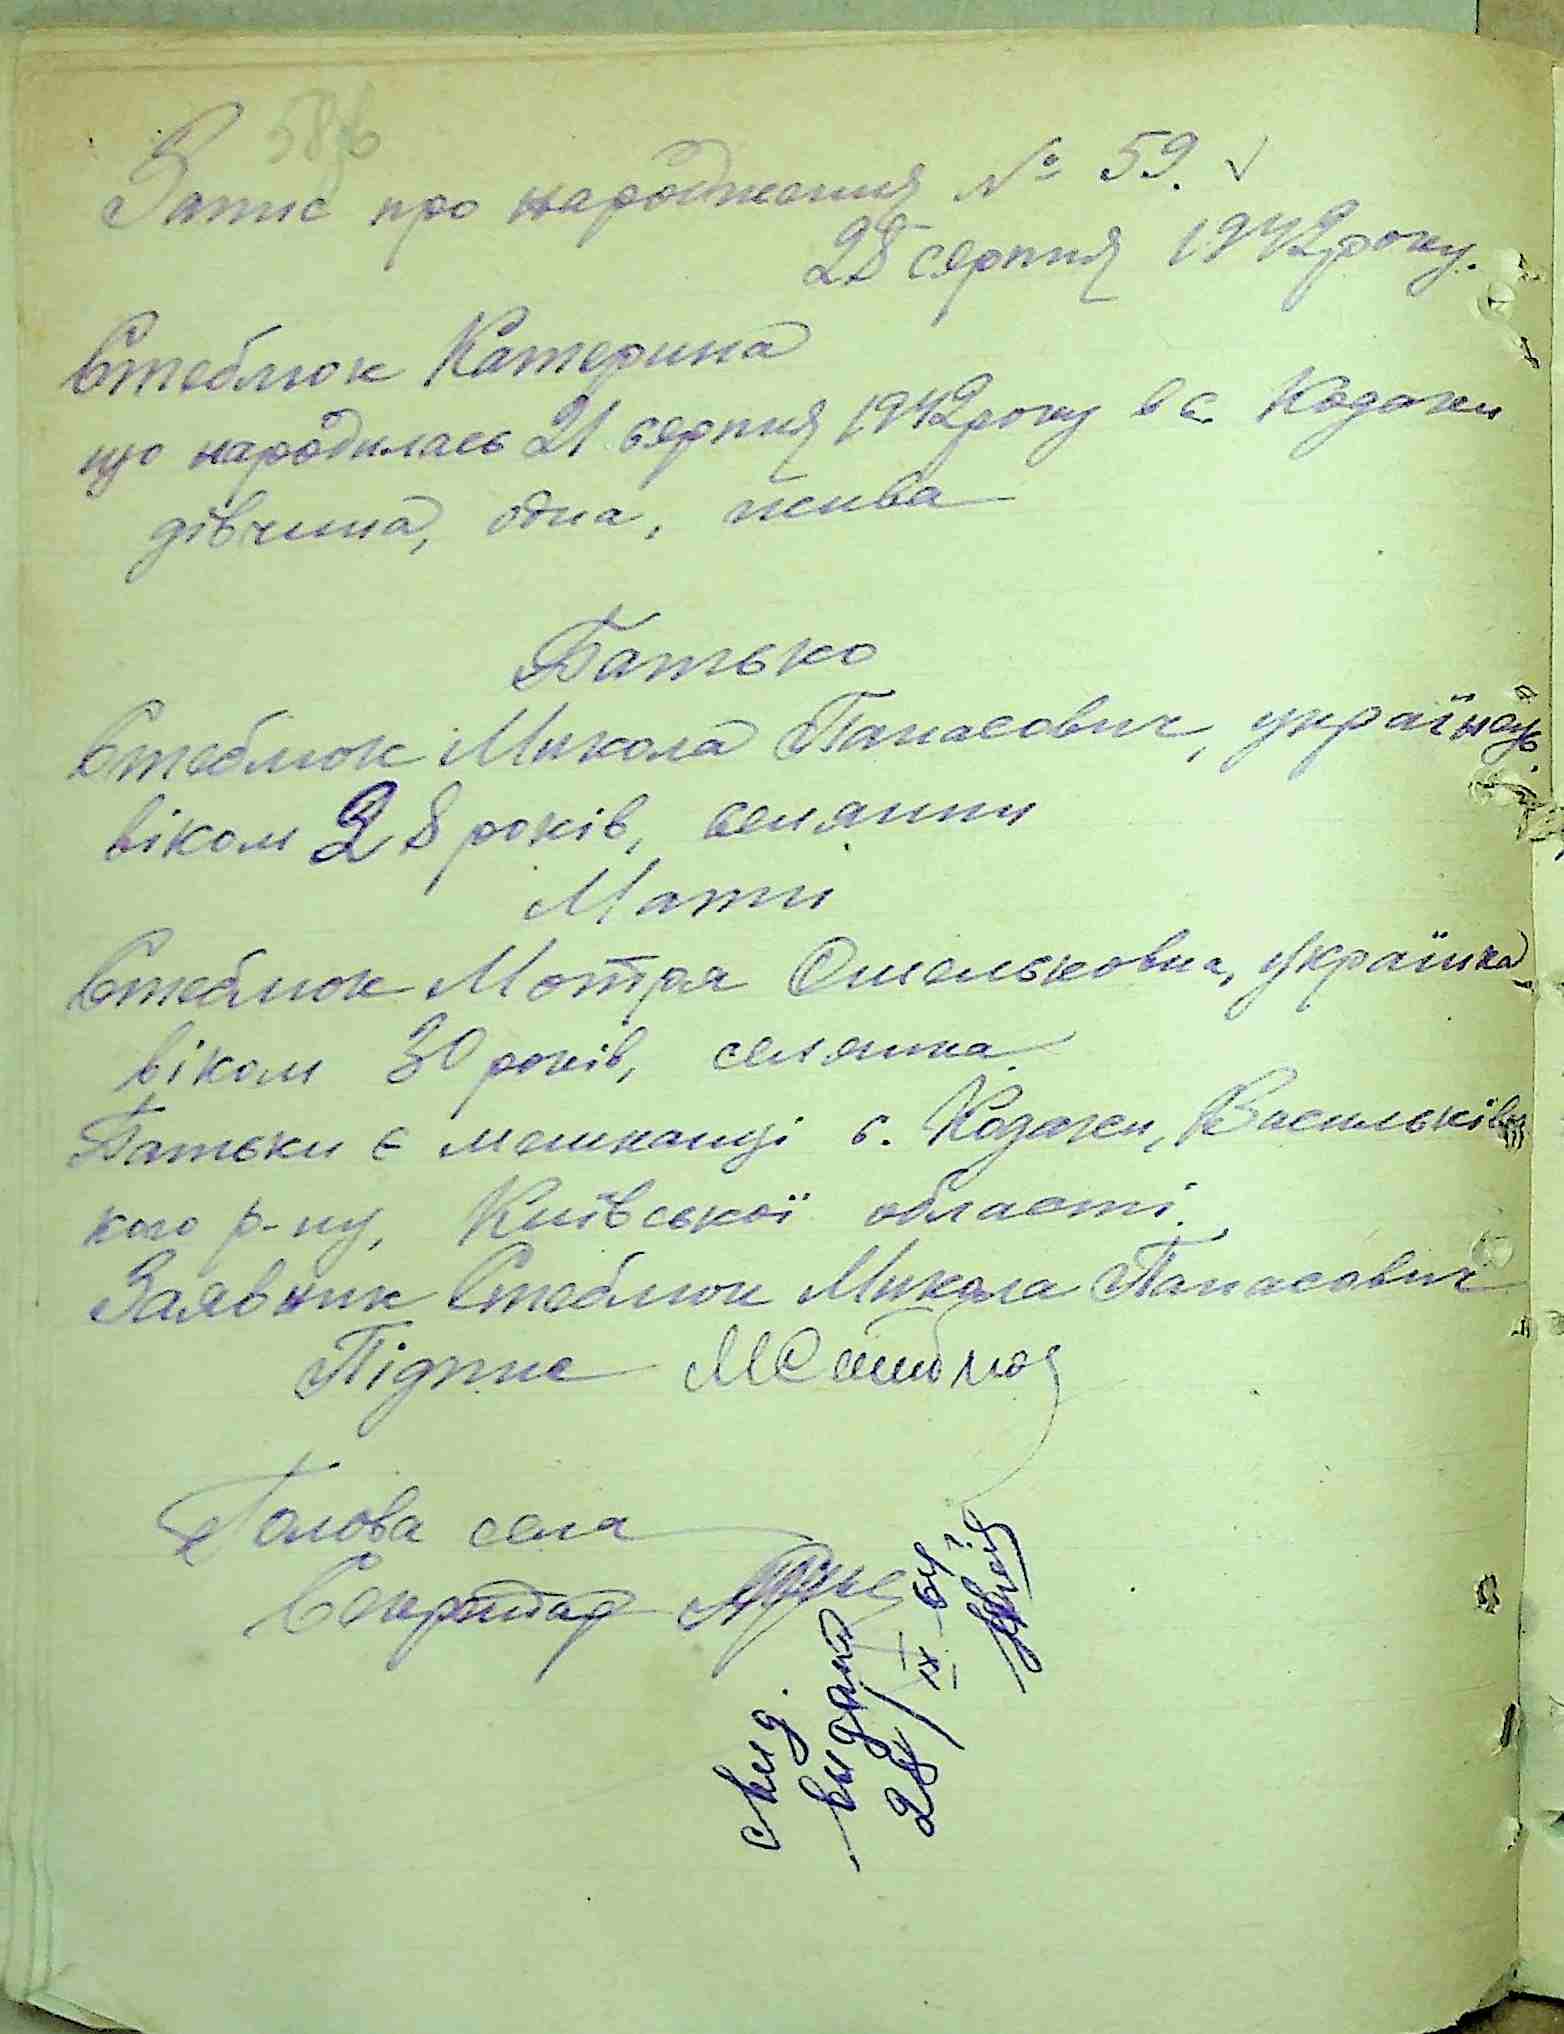 Запис про народження № 59. √
28 серпня 1942 року.
Стеблюк Катерина
що народилась 21 серпня 1942 року в с. Кодаки
дівчина, одна, жива
Батько
Стеблюк Микола Панасович, українець.
віком 28 років, селянин
Мати
Стеблюк Мотря Омельковна, українка
віком 30 років, селянка.
Батьки є мешканці с. Кодаки, Васильківсь
кого р-ну, Київської області.
Заявник Стеблюк Микола Панасович
Підпис МСтеблюк
Голова села
Секретар
свид.
выдано
28/IX 64 г.